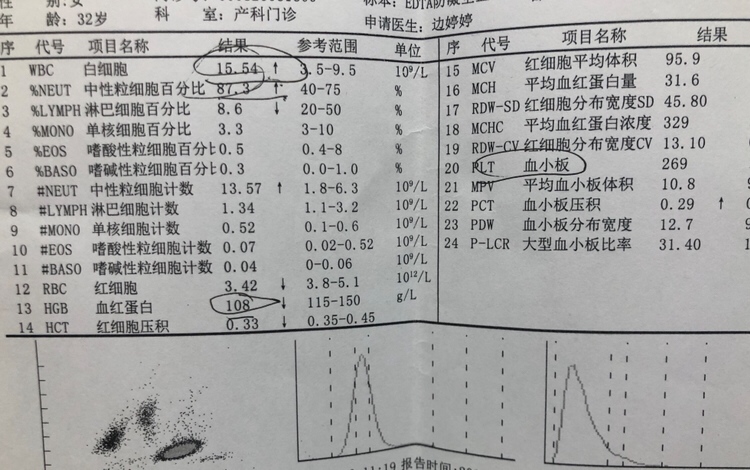 性 别:女
年 龄:32岁
科 室:产科门诊
标本:EDTA防凝
申请医生:边婷婷
序 代号 项目名称 结果 参考范围 单位
1 WBC 白细胞 15.54 ↑ 3.5-9.5 10^9/L
2 %NEUT 中性粒细胞百分比 87.3 ↑ 40-75 %
3 %LYMPH 淋巴细胞百分比 8.6 ↓ 20-50 %
4 %MONO 单核细胞百分比 3.3 3-10 %
5 %EOS 嗜酸性粒细胞百分比 0.5 0.4-8 %
6 %BASO 嗜碱性粒细胞百分比 0.3 0.0-1.0 %
7 #NEUT 中性粒细胞计数 13.57 ↑ 1.8-6.3 10^9/L
8 #LYMPH 淋巴细胞计数 1.34 1.1-3.2 10^9/L
9 #MONO 单核细胞计数 0.52 0.1-0.6 10^9/L
10 #EOS 嗜酸性粒细胞计数 0.07 0.02-0.52 10^9/L
11 #BASO 嗜碱性粒细胞计数 0.04 0-0.06 10^9/L
12 RBC 红细胞 3.42 ↓ 3.8-5.1 10^12/L
13 HGB 血红蛋白 108 ↓ 115-150 g/L
14 HCT 红细胞压积 0.33 ↓ 0.35-0.45
序 代号 项目名称 结果
15 MCV 红细胞平均体积 95.9
16 MCH 平均血红蛋白量 31.6
17 RDW-SD 红细胞分布宽度SD 45.80
18 MCHC 平均血红蛋白浓度 329
19 RDW-CV 红细胞分布宽度CV 13.10
20 PLT 血小板 269
21 MPV 平均血小板体积 10.8
22 PCT 血小板压积 0.29 ↑
23 PDW 血小板分布宽度 12.7
24 P-LCR 大型血小板比率 31.40
11:19 报告时间:20